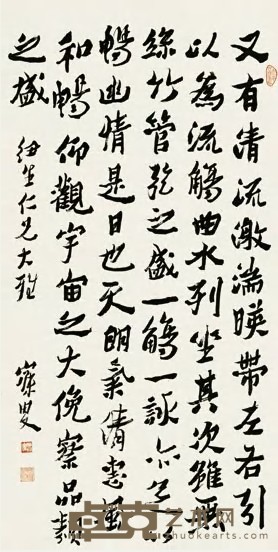 又有清流激湍暎帶左右引
以為流觴曲水列坐其次雖無
絲竹管弦之盛一觴一詠亦足
暢幽情是日也天朗氣清惠風
和暢仰觀宇宙之大俛察品類
之盛
仁兄大雅
寐叟
卓克艺术网